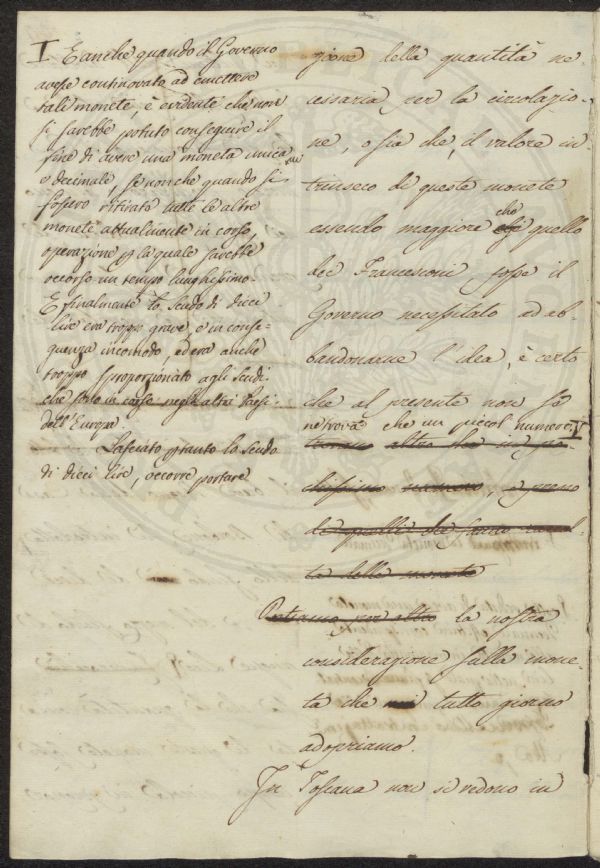 I E anche quando il Governo
avesse continovato ad emettere
tali monete, è evidente che non
si sarebbe potuto conseguire il
fine di avere una moneta unica
e decimale, se non che quando si
fossero ritirate tutte le altre
monete attualmente in corso,
operazione p la quale sarebbe
occorso un tempo lunghissimo.
E finalmente lo scudo di dieci
lire era troppo grave, e in conse-
guenza incomodo, ed era anche
troppo sproporzionato agli scudi
che sono in corso negli altri Paesi
dell'Europa.
Lasciato ptanto lo scudo
di dieci lire, occorre portare
gione della quantità ne
cessaria per la circolazio-
ne, o sia che, il valore in-
trinseco di queste monete
essendo maggiore che quello
dei Francesconi fosse il
Governo necessitato ad ab-
bandonarne l'idea, è certo
che al presente non se
ne trova che un piccol numero. I
trovano altro che un po-
chissimo numero, e
di quelle che
ta delle monete
Portiamo per altro la nostra
considerazione sulla mone-
ta che noi tutto giorno
adopriamo.
In Toscana non si vedono in